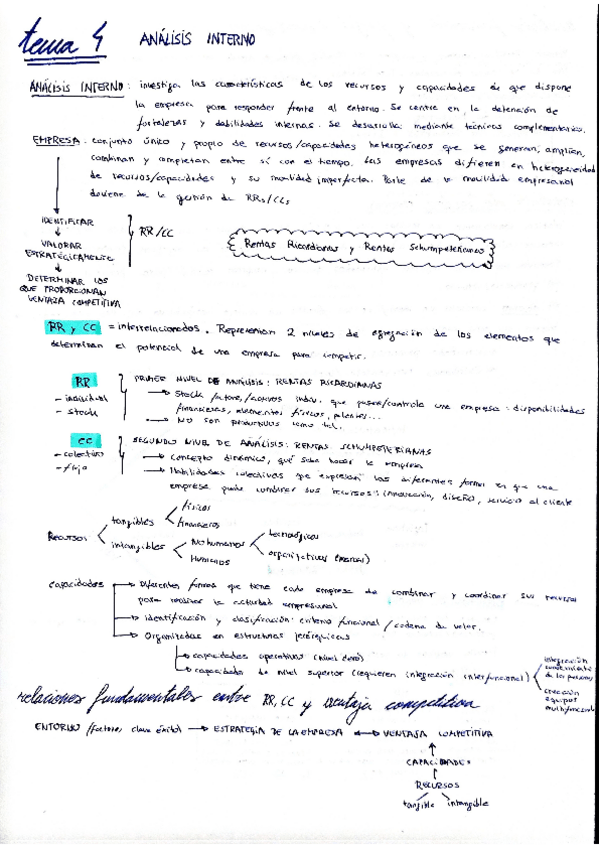 tema 4 ANÁLISIS INTERNO
ANÁLISIS INTERNO: investiga las características de los recursos y capacidades de que dispone
la empresa para responder frente al entorno. Se centra en la detención de
fortalezas y debilidades internas. Se desarrolla mediante técnicas complementarias.
EMPRESA: conjunto único y propio de recursos/capacidades heterogéneos que se generan, amplían,
combinan y completan entre sí con el tiempo. Las empresas difieren en heterogeneidad
de recursos/capacidades y su movilidad imperfecta. Parte de la movilidad empresarial
deviene de la gestión de RRs/CCs
IDENTIFICAR
VALORAR
ESTRATÉGICAMENTE
DETERMINAR LOS
QUE PROPORCIONAN
VENTAJA COMPETITIVA
RR/CC
Rentas Ricardianas y Rentas Schumpeterianas
RR y CC = interrelacionados. Representan 2 niveles de agregación de los elementos que
determinan el potencial de una empresa para competir.
RR
- individual
- stock
PRIMER NIVEL DE ANÁLISIS: RENTAS RICARDIANAS
→ Stock factores/activos indiv. que posee/controla una empresa: disponibilidades
financieras, elementos físicos, patentes...
→ NO son productivos como tal.
CC
- colectivo
- flujo
SEGUNDO NIVEL DE ANÁLISIS: RENTAS SCHUMPETERIANAS
→ Concepto dinámico, qué sabe hacer la empresa
→ Habilidades colectivas que expresan las diferentes formas en que una
empresa puede combinar sus recursos: (innovación, diseño, servicio al cliente
RECURSOS
tangibles
físicos
financieros
intangibles
No humanos
tecnológicos
organizativos (marcas)
Humanos
capacidades
→ Diferentes formas que tiene cada empresa de combinar y coordinar sus recursos
para realizar la actividad empresarial
→ identificación y clasificación: criterio funcional/cadena de valor.
→ Organizadas en estructuras jerárquicas
→ capacidades operativas (nivel cero)
→ capacidades de nivel superior (requieren integración interfuncional)
integración
conocimiento
de las personas
creación
equipos
relaciones fundamentales entre RR, CC y ventaja competitiva
ENTORNO (factores clave éxito) → ESTRATEGIA DE LA EMPRESA ↔ VENTAJA COMPETITIVA
↑
CAPACIDADES
↑
RECURSOS
tangible intangible